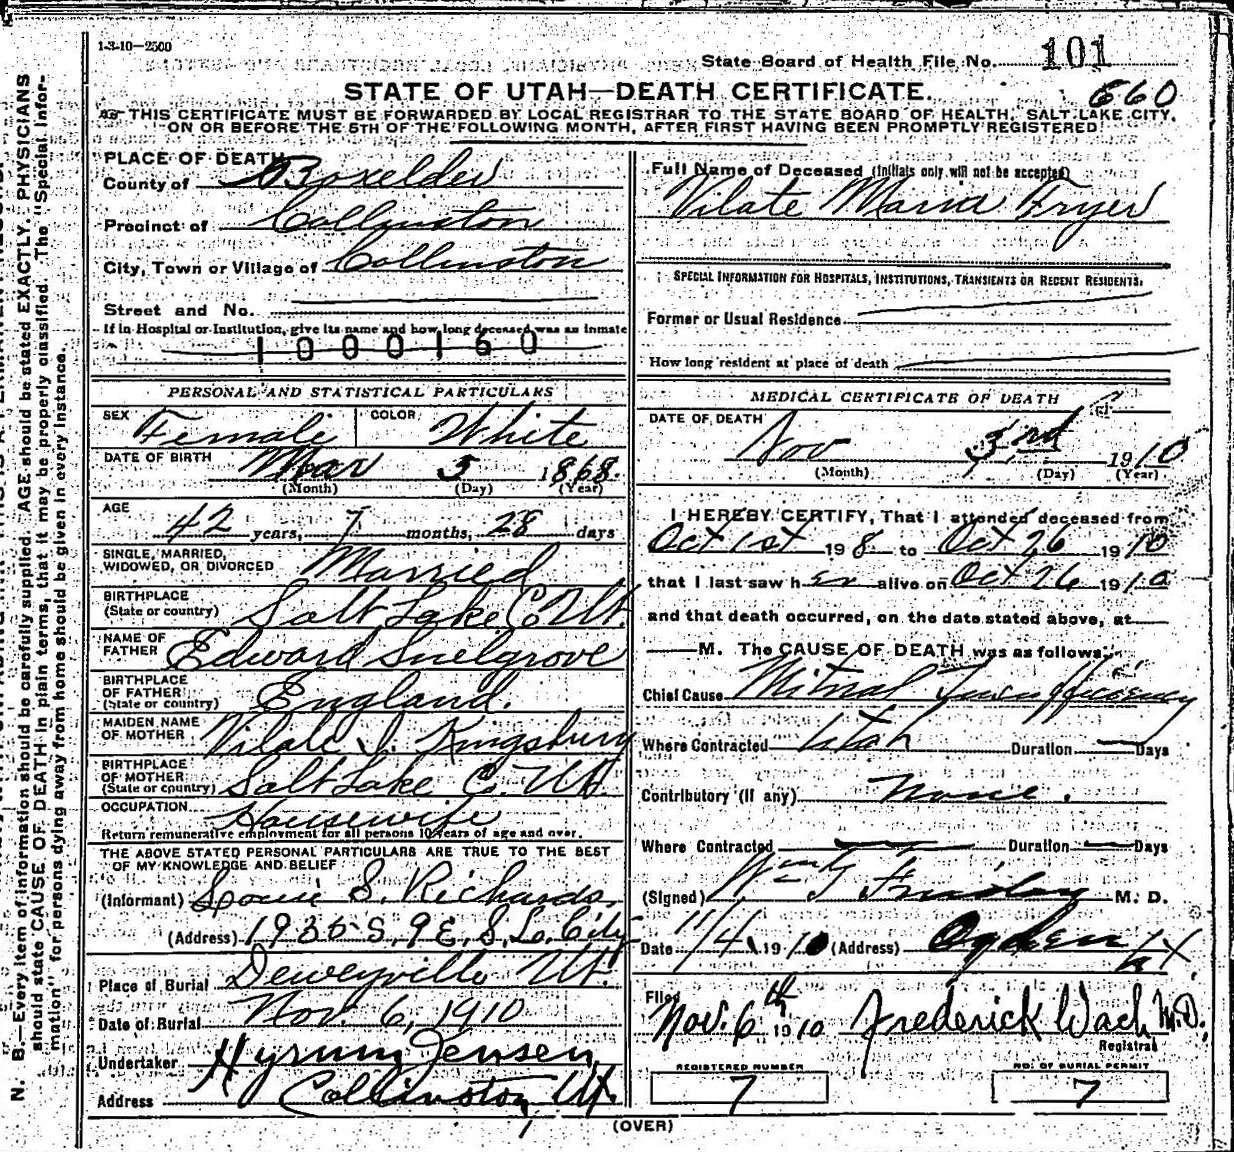 1-3-10—2500
State Board of Health File No. 101
STATE OF UTAH—DEATH CERTIFICATE.
660
THIS CERTIFICATE MUST BE FORWARDED BY LOCAL REGISTRAR TO THE STATE BOARD OF HEALTH, SALT LAKE CITY,
ON OR BEFORE THE 5TH OF THE FOLLOWING MONTH, AFTER FIRST HAVING BEEN PROMPTLY REGISTERED.
PLACE OF DEATH
County of Boxelder
Precinct of Collinston
City, Town or Village of Collinston
Street and No.
If in Hospital or Institution, give its name and how long deceased was an inmate
1000160
PERSONAL AND STATISTICAL PARTICULARS
SEX Female COLOR White
DATE OF BIRTH Mar 5 1868.
(Month) (Day) (Year)
AGE
42 years, 7 months, 28 days
SINGLE, MARRIED,
WIDOWED, OR DIVORCED Married
BIRTHPLACE
(State or country) Salt Lake Co Ut.
NAME OF
FATHER Edward Snelgrove
BIRTHPLACE
OF FATHER
(State or country) England.
MAIDEN NAME
OF MOTHER Vilate I. Kingsbury
BIRTHPLACE
OF MOTHER
(State or country) Salt Lake Co. Ut.
OCCUPATION Housewife
Return remunerative employment for all persons 10 years of age and over.
THE ABOVE STATED PERSONAL PARTICULARS ARE TRUE TO THE BEST
OF MY KNOWLEDGE AND BELIEF
(Informant) Louie S. Richards.
(Address) 1935 S. 9 E. S. L. City
Place of Burial Deweyville Ut.
Date of Burial Nov. 6, 1910
Undertaker Hyrum Jensen
Address Collinston, Ut.
Full Name of Deceased (Initials only will not be accepted)
Vilate Maria Fryer
SPECIAL INFORMATION FOR HOSPITALS, INSTITUTIONS, TRANSIENTS OR RECENT RESIDENTS.
Former or Usual Residence
How long resident at place of death
MEDICAL CERTIFICATE OF DEATH
DATE OF DEATH
Nov 3rd 1910
(Month) (Day) (Year)
I HEREBY CERTIFY, That I attended deceased from
Oct 1st 198 to Oct 26 1910
that I last saw her alive on Oct 26 1910
and that death occurred, on the date stated above, at
M. The CAUSE OF DEATH was as follows:
Chief Cause Mitral Insufficiency
Where Contracted Utah Duration Days
Contributory (if any) None.
Where Contracted Duration Days
(Signed) M. D.
Date 11/4 1910 (Address) Ogden Ut.
Filed
Nov. 6th 1910 Frederick Wach M.D.
Registrar
REGISTERED NUMBER
7
NO. OF BURIAL PERMIT
7
(OVER)
N. B.—Every item of information should be carefully supplied. AGE should be stated EXACTLY. PHYSICIANS
should state CAUSE OF DEATH in plain terms, that it may be properly classified. The "Special Infor-
mation" for persons dying away from home should be given in every instance.